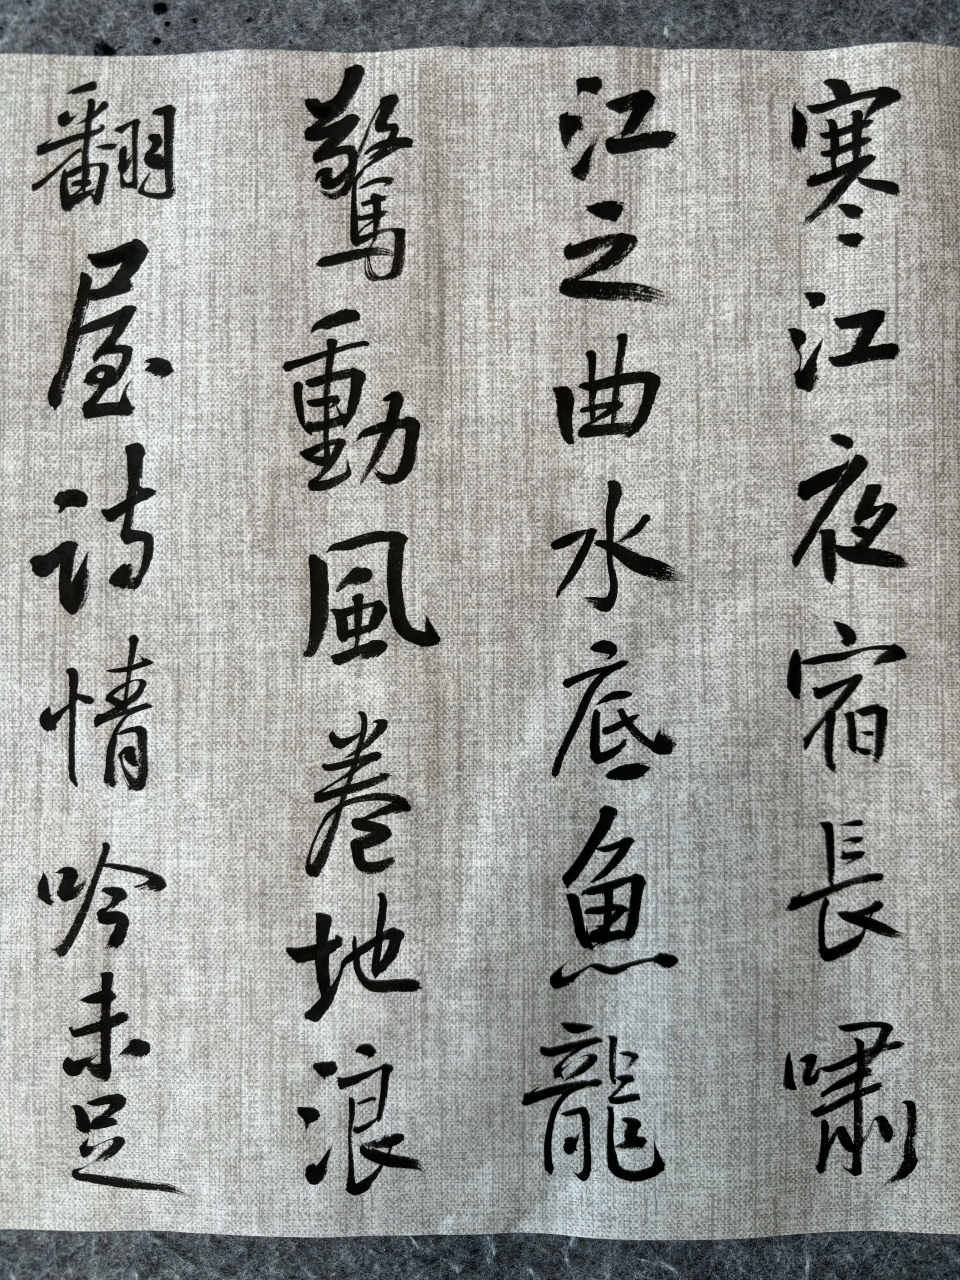 寒江夜宿長嘯
江之曲水底魚龍
驚動風卷地浪
翻屋詩情吟未足